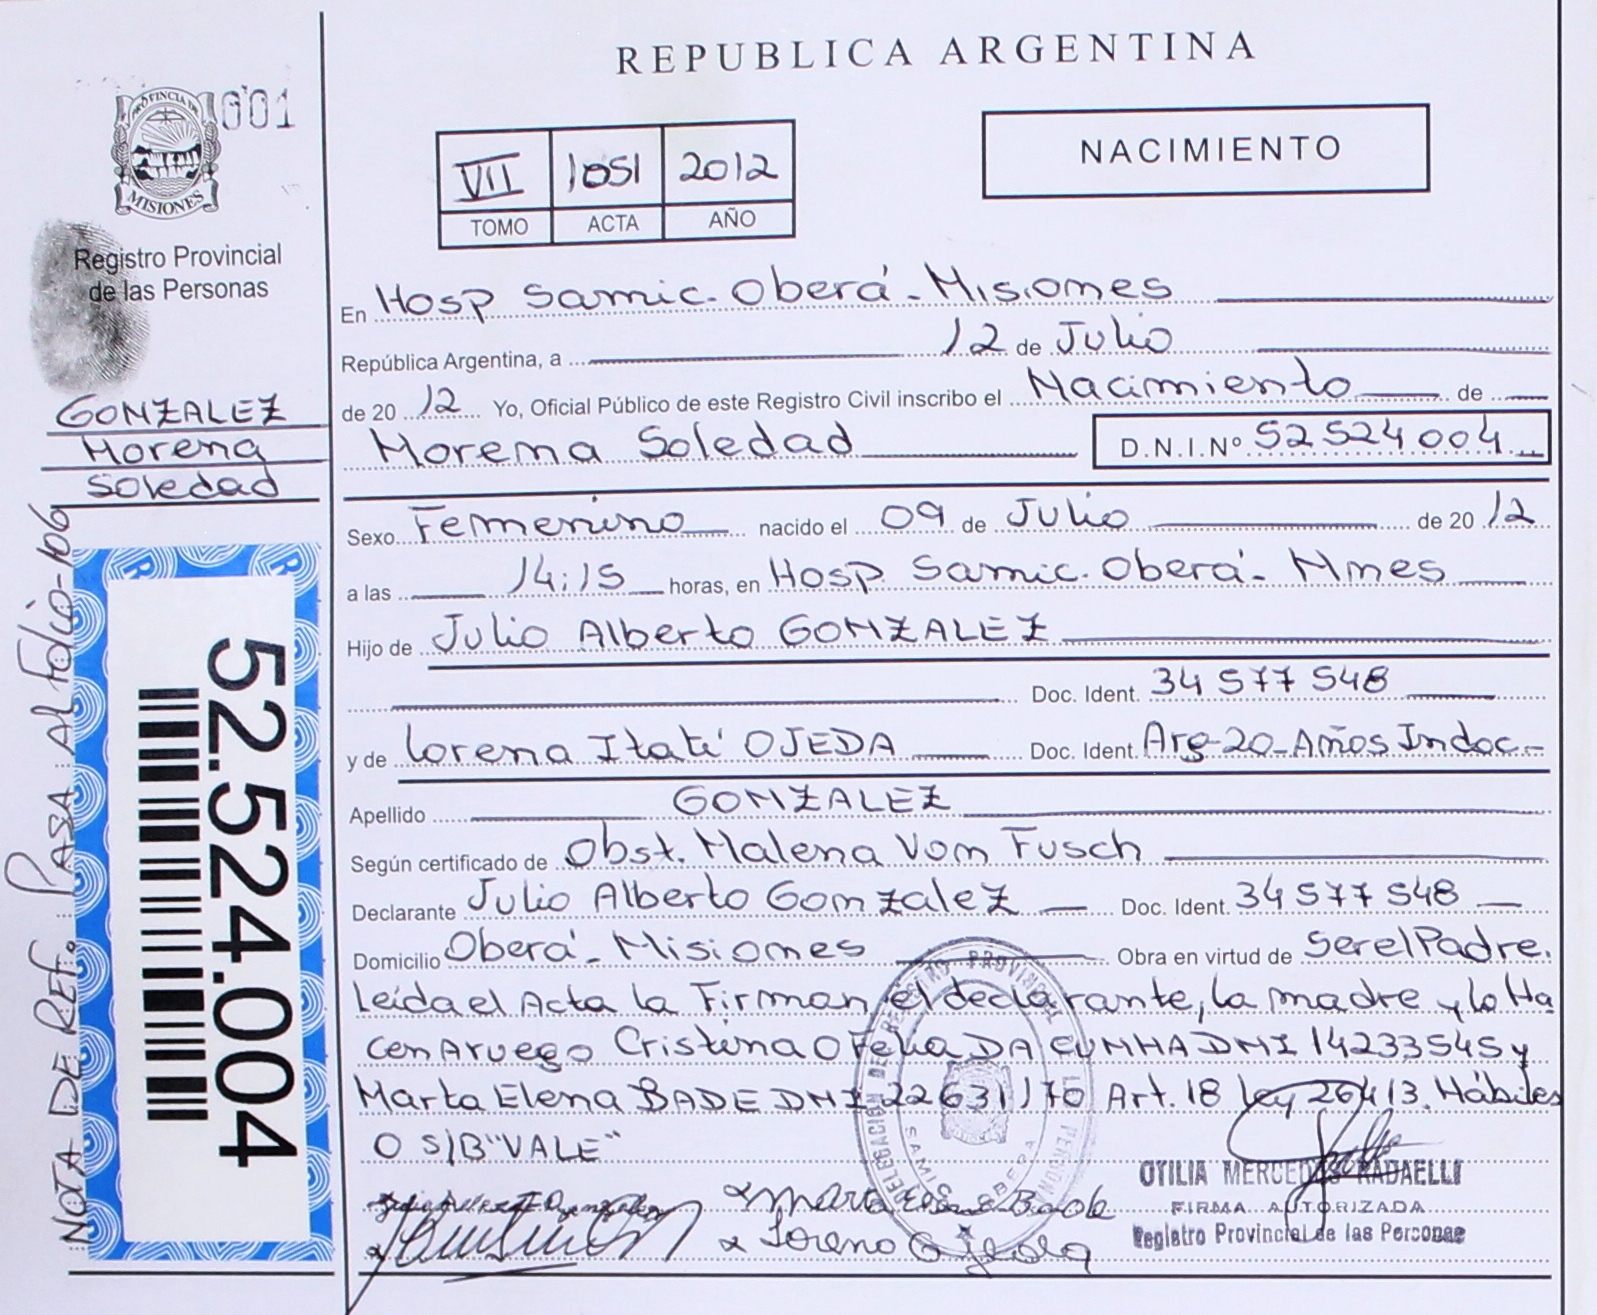 REPUBLICA ARGENTINA
001
PROVINCIA DE
MISIONES
Registro Provincial
de las Personas
GONZALEZ
Morena
Soledad
NOTA DE REF. PASA AL FOLIO-106
52.524.004
VII 1051 2012
TOMO ACTA AÑO
NACIMIENTO
En Hosp Samic. Oberá - Misiones
República Argentina, a 12 de Julio
de 20 12 Yo, Oficial Público de este Registro Civil inscribo el Nacimiento de
Morena Soledad D.N.I.Nº 52524004
Sexo Femenino nacido el 09 de Julio de 20 12
a las 14:15 horas, en Hosp. Samic. Oberá - Mnes
Hijo de Julio Alberto GONZALEZ
Doc. Ident. 34577548
y de Lorena Itatí OJEDA Doc. Ident. Arg-20-Años Indoc-
Apellido GONZALEZ
Según certificado de Obst. Malena Von Fusch
Declarante Julio Alberto Gonzalez Doc. Ident. 34577548
Domicilio Oberá - Misiones Obra en virtud de Ser el Padre.
Leída el Acta la Firman el declarante, la madre y lo Ha
cen A ruego Cristina Ofelia DA CUNHA DNI 14233545 y
Marta Elena BADE DNI 22631170 Art. 18 Ley 26413. Hábiles
O S/B "VALE"
OTILIA MERCEDES RADAELLI
FIRMA AUTORIZADA
Registro Provincial de las Personas
DELEGACION DEL REGISTRO PROVINCIAL PERSONAS
SAMIC OBERA